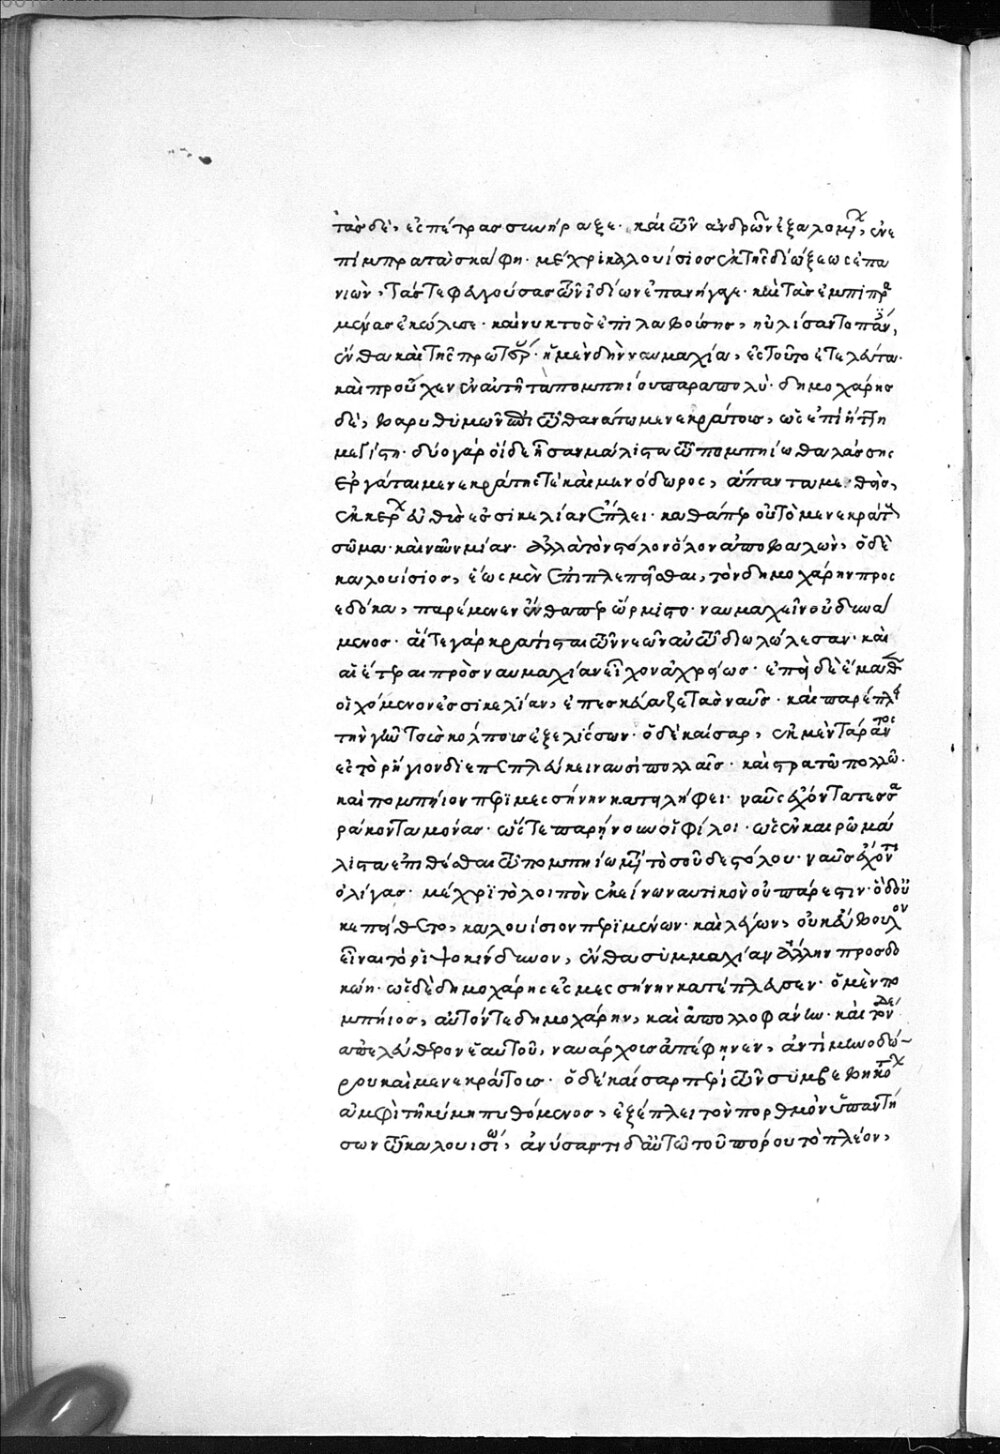 τὰς δὲ, ἐς πέτρας συνήραξε· καὶ τῶν ἀνδρῶν ἐξαλομένων, ἐνε
πίμπρα τὰ σκάφη· μέχρι καλουίσιος ἐκ τῆς διώξεως ἐπα
νιὼν, τάς τε φευγούσας τῶν ἰδίων ἐπανήγαγε· καὶ τὰς ἐμπιπρα
μένας ἐκώλυσε· καὶ νυκτὸς ἐπιλαβούσης, ηὐλίσαντο πάντες,
ἔνθα καὶ τῆς προτέρας· ἡ μὲν δὴ ναυμαχία, ἐς τοῦτο ἐτελεύτα·
καὶ προῦχεν ἐν αὐτῇ τὰ πομπηίου παρὰ πολύ· δημοχάρης
δὲ, βαρυθυμῶν ἐπὶ τῷ θανάτῳ μενεκράτους, ὡς ἐπὶ ἥττῃ
μεγίστῃ· δύο γὰρ οἵδε ἦσαν μάλιστα τῷ πομπηίῳ θαλάσσης
ἐργάται μενεκράτης τε καὶ μηνόδωρος, ἅπαντα μεθεὶς,
ἐκ χειρῶν εὐθὺς ἐς σικελίαν ἔπλει· καθάπερ οὐ τὸ μενεκράτους
σῶμα· καὶ ναῦν μίαν· ἀλλὰ τὸν στόλον ὅλον ἀποβαλών· ὁ δὲ
καλουίσιος, ἕως μὲν ἐπιπλευσεῖσθαι, τὸν δημοχάρην προσ
εδόκα, παρέμενεν ἔνθαπερ ὥρμιστο· ναυμαχεῖν οὐ δυνά
μενος· αἵ τε γὰρ κράτισται τῶν νεῶν αὐτῷ διωλώλεσαν· καὶ
αἱ ἕτεραι πρὸς ναυμαχίαν εἶχον ἀχρείως· ἐπεὶ δὲ ἔμαθεν
οἰχόμενον ἐς σικελίαν, ἐπεσκεύαζε τὰς ναῦς· καὶ παρέπλει
τὴν γῆν τοὺς κόλπους ἐξελίσσων· ὁ δὲ καῖσαρ, ἐκ μὲν τάραντος
ἐς τὸ ῥήγιον διεπεπλεύκει ναυσὶ πολλαῖς· καὶ στρατῷ πολλῷ·
καὶ πομπήιον περὶ μεσσήνην κατειλήφει· ναῦς ἔχοντα τεσσα
ράκοντα μόνας· ὥστε παρῄνουν οἱ φίλοι· ὡς ἐν καιρῷ μά
λιστα ἐπιθέσθαι τῷ πομπηίῳ μετὰ τοσοῦδε στόλου· ναῦς ἔχοντι
ὀλίγας· μέχρι τὸ λοιπὸν ἐκείνῳ ναυτικὸν οὐ πάρεστιν· ὁ δ' οὐ
κ ἐπείθετο, καλουίσιον περιμένων· καὶ λέγων, οὐκ εὔβουλον
εἶναι τὸ ῥιψοκίνδυνον, ἔνθα συμμαχίαν ἄλλην προσδο
κῴη· ὡς δὲ δημοχάρης ἐς μεσσήνην κατέπλευσεν· ὁ μὲν πο
μπήιος, αὐτόν τε δημοχάρην, καὶ ἀπολλοφάνην· καὶ τόνδε
ἀπελεύθερον ἑαυτοῦ, ναυάρχους ἀπέφηνεν, ἀντὶ μηνοδώ
ρου καὶ μενεκράτους· ὁ δὲ καῖσαρ περὶ τῶν συμβεβηκότων
ἀμφὶ τῇ κύμῃ πυθόμενος, ἐξέπλει τὸν πορθμὸν ὑπαντή
σων τῷ καλουισίῳ, ἀνύσαντι δ' αὐτῷ τοῦ πόρου τὸ πλέον,